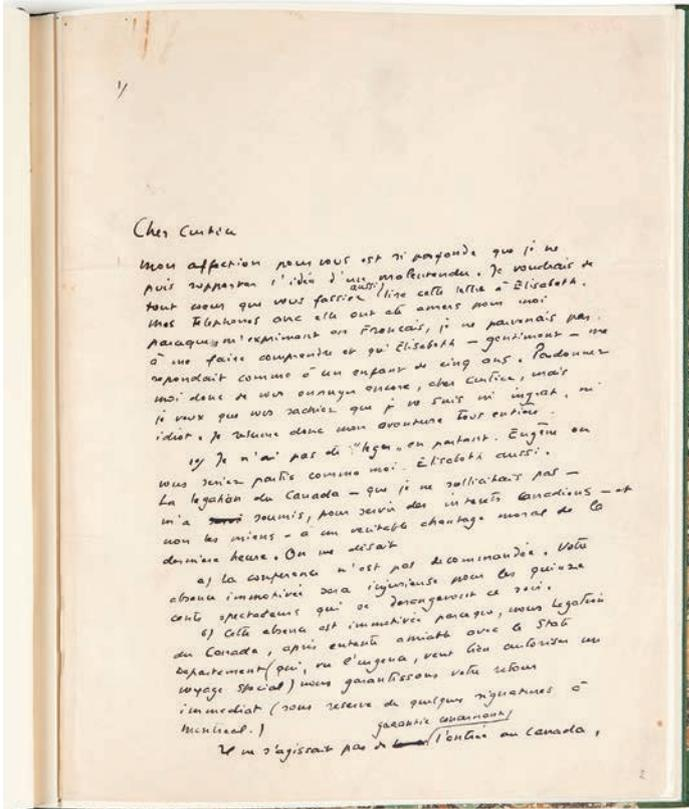 1/
Cher Curtice
mon affection pour vous est si profonde que je ne
puis supporter l'idée d'un malentendu. Je voudrais de
tout coeur que vous fassiez (aussi) lire cette lettre à Elisabeth.
mes téléphones avec elle ont été amers pour moi
parceque, m'exprimant en Français, je ne parvenais pas
à me faire comprendre et qu'Elisabeth – gentiment – me
répondait comme à un enfant de cinq ans. Pardonnez
moi donc de vous ennuyer encore, cher Curtice, mais
je veux que vous sachiez que je ne suis ni ingrat, ni
idiot. Je résume donc mon aventure tout entière.
1°) Je n'ai pas été "léger" en partant. Eugène ou
vous seriez partis comme moi. Elisabeth aussi.
La légation du Canada – que je ne sollicitais pas –
m'a soumis, pour servir des intérêts canadiens – et
non les miens – à un véritable chantage moral de la
dernière heure. On me disait
a) la conférence n'est pas décommandée. Votre
absence immotivée sera injurieuse pour les quinze
cents spectateurs qui se dérangeront ce soir.
b) Cette absence est immotivée parceque, nous légation
du Canada, après entente amiable avec le State
Departement (qui, vu l'urgence, veut bien autoriser un
voyage spécial) nous garantissons votre retour
immédiat (sous réserve de quelques signatures à
Montréal.)
garantie concernant
Il ne s'agissait pas de l'entrée au Canada,
2